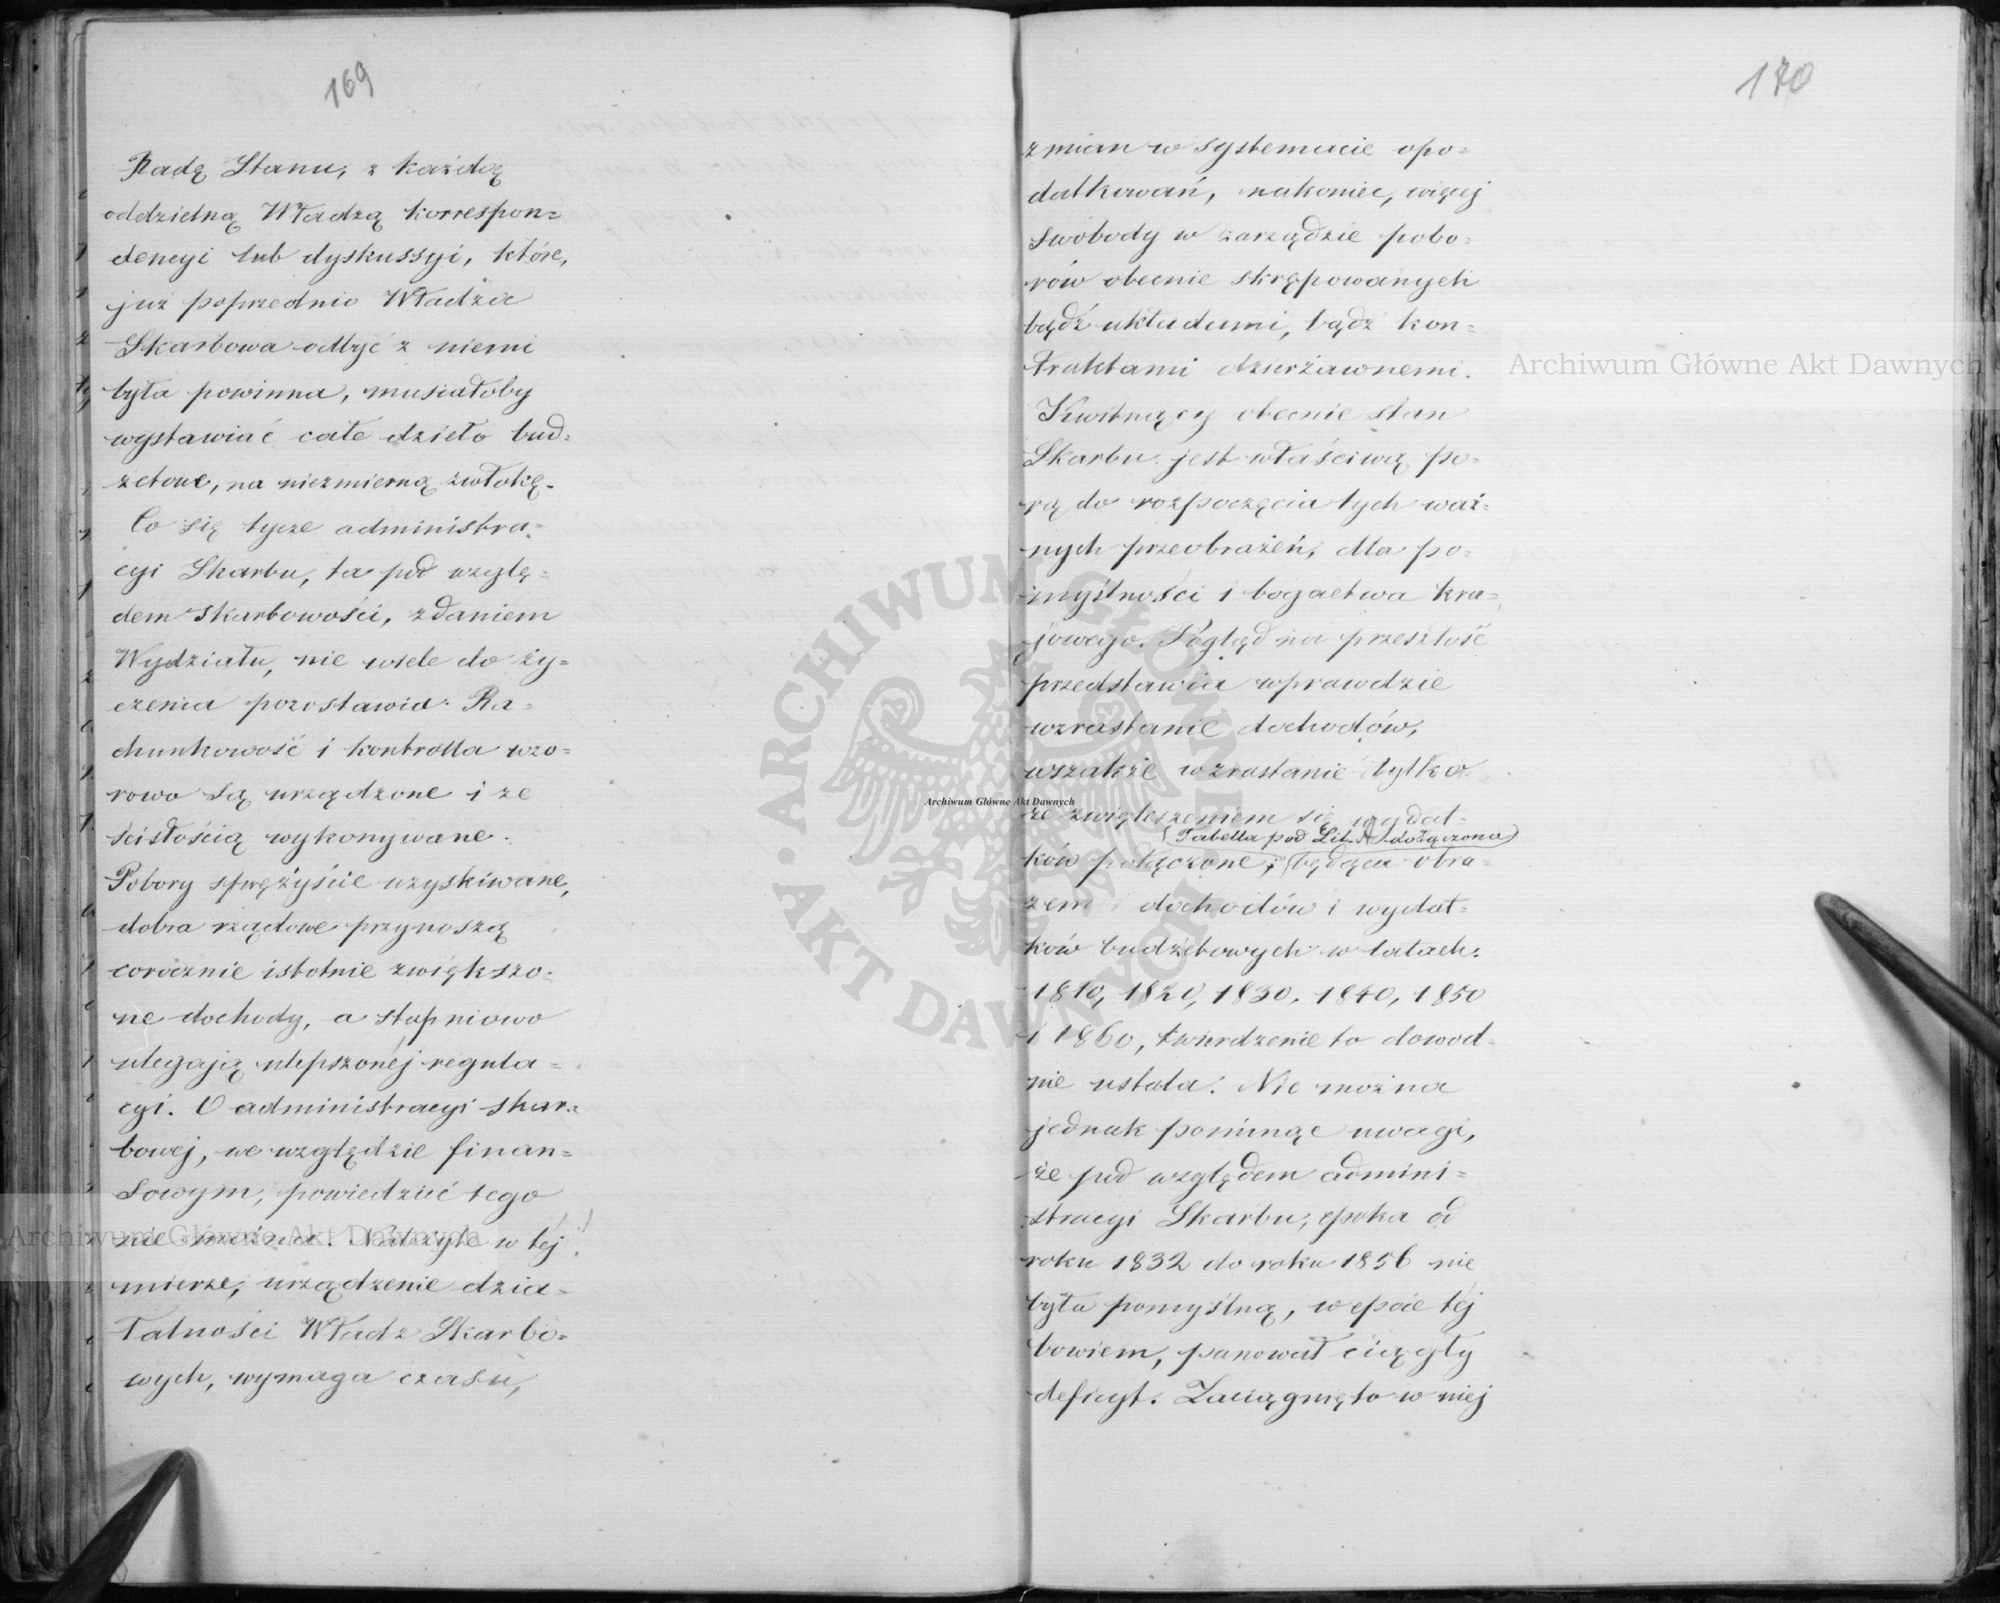 169
Radę Stanu, z każdą
oddzielną Władzą korrespon=
dencyi lub dyskussyi, które,
już poprzednio Władza
Skarbowa odbyć z niemi
była powinna, musiałoby
wystawiać całe dzieło bud=
żetowe, na niezmierną zwłokę.
Co się tycze administra=
cyi Skarbu, ta pod wzglę=
dem skarbowości, zdaniem
Wydziału, nie wiele do ży=
czenia pozostawia. Ra=
chunkowość i kontrolla wzo=
rowo są urządzone i ze
ścisłością wykonywane.
Pobory sprężyście uzyskiwane,
dobra rządowe przynoszą
corocznie istotnie zwiększo=
ne dochody, a stopniowo
ulegają ulepszonej regula=
cyi. O administracyi skar=
bowej, we względzie finan=
sowym, powiedzieć tego
nie można. Należyte w tej
mierze, urządzenie dzia=
łalności Władz Skarbo=
wych, wymaga czasu,
170
zmian w systemacie opo=
datkowań, nakoniec, więcej
swobody w zarządzie pobo=
rów obecnie skrępowanych
bądź układami, bądź kon=
traktami dzierżawnemi.
Kwitnący obecnie stan
Skarbu jest właściwą po=
rą do rozpoczęcia tych waż=
nych przeobrażeń, dla po=
myślności i bogactwa kra=
jowego. Pogląd na przeszłość
przedstawia wprawdzie
wzrastanie dochodów,
wszakże wzrastanie tylko
ze zwiększeniem się wydat=
(Tabella pod Lit. A dołączona)
ków połączone; będąca obra=
zem dochodów i wydat=
ków budżetowych w latach:
1810, 1820, 1830, 1840, 1850
i 1860, twierdzenie to dowod=
nie ustala. Nie można
jednak pominąć uwagi,
że pod względem admini=
stracyi Skarbu, epoka od
roku 1832 do roku 1856 nie
była pomyślną, w epoce tej
bowiem, panował ciągły
deficyt. Zaciągnięto w niej
Archiwum Główne Akt Dawnych
Archiwum Główne Akt Dawnych
Archiwum Główne Akt Dawnych
ARCHIWUM GŁÓWNE AKT DAWNYCH